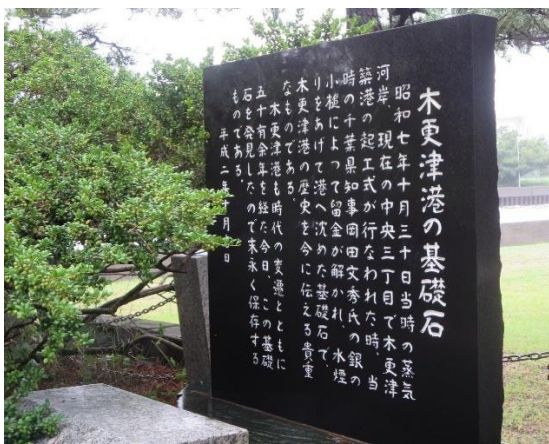 木更津港の基礎石
昭和七年十月三十日当時の蒸気
河岸、現在の中央三丁目で木更津
築港の起工式が行なわれた時、当
時の千葉県知事岡田文秀氏の銀の
小槌によって留金が解かれ、水煙
りをあげて港へ沈めた基礎石で、
木更津港の歴史を今に伝える貴重
なものである。
木更津港も時代の変遷とともに
五十有余年を経た今日、この基礎
石を発見したので末永く保存する
ものである。
平成二年 月 日